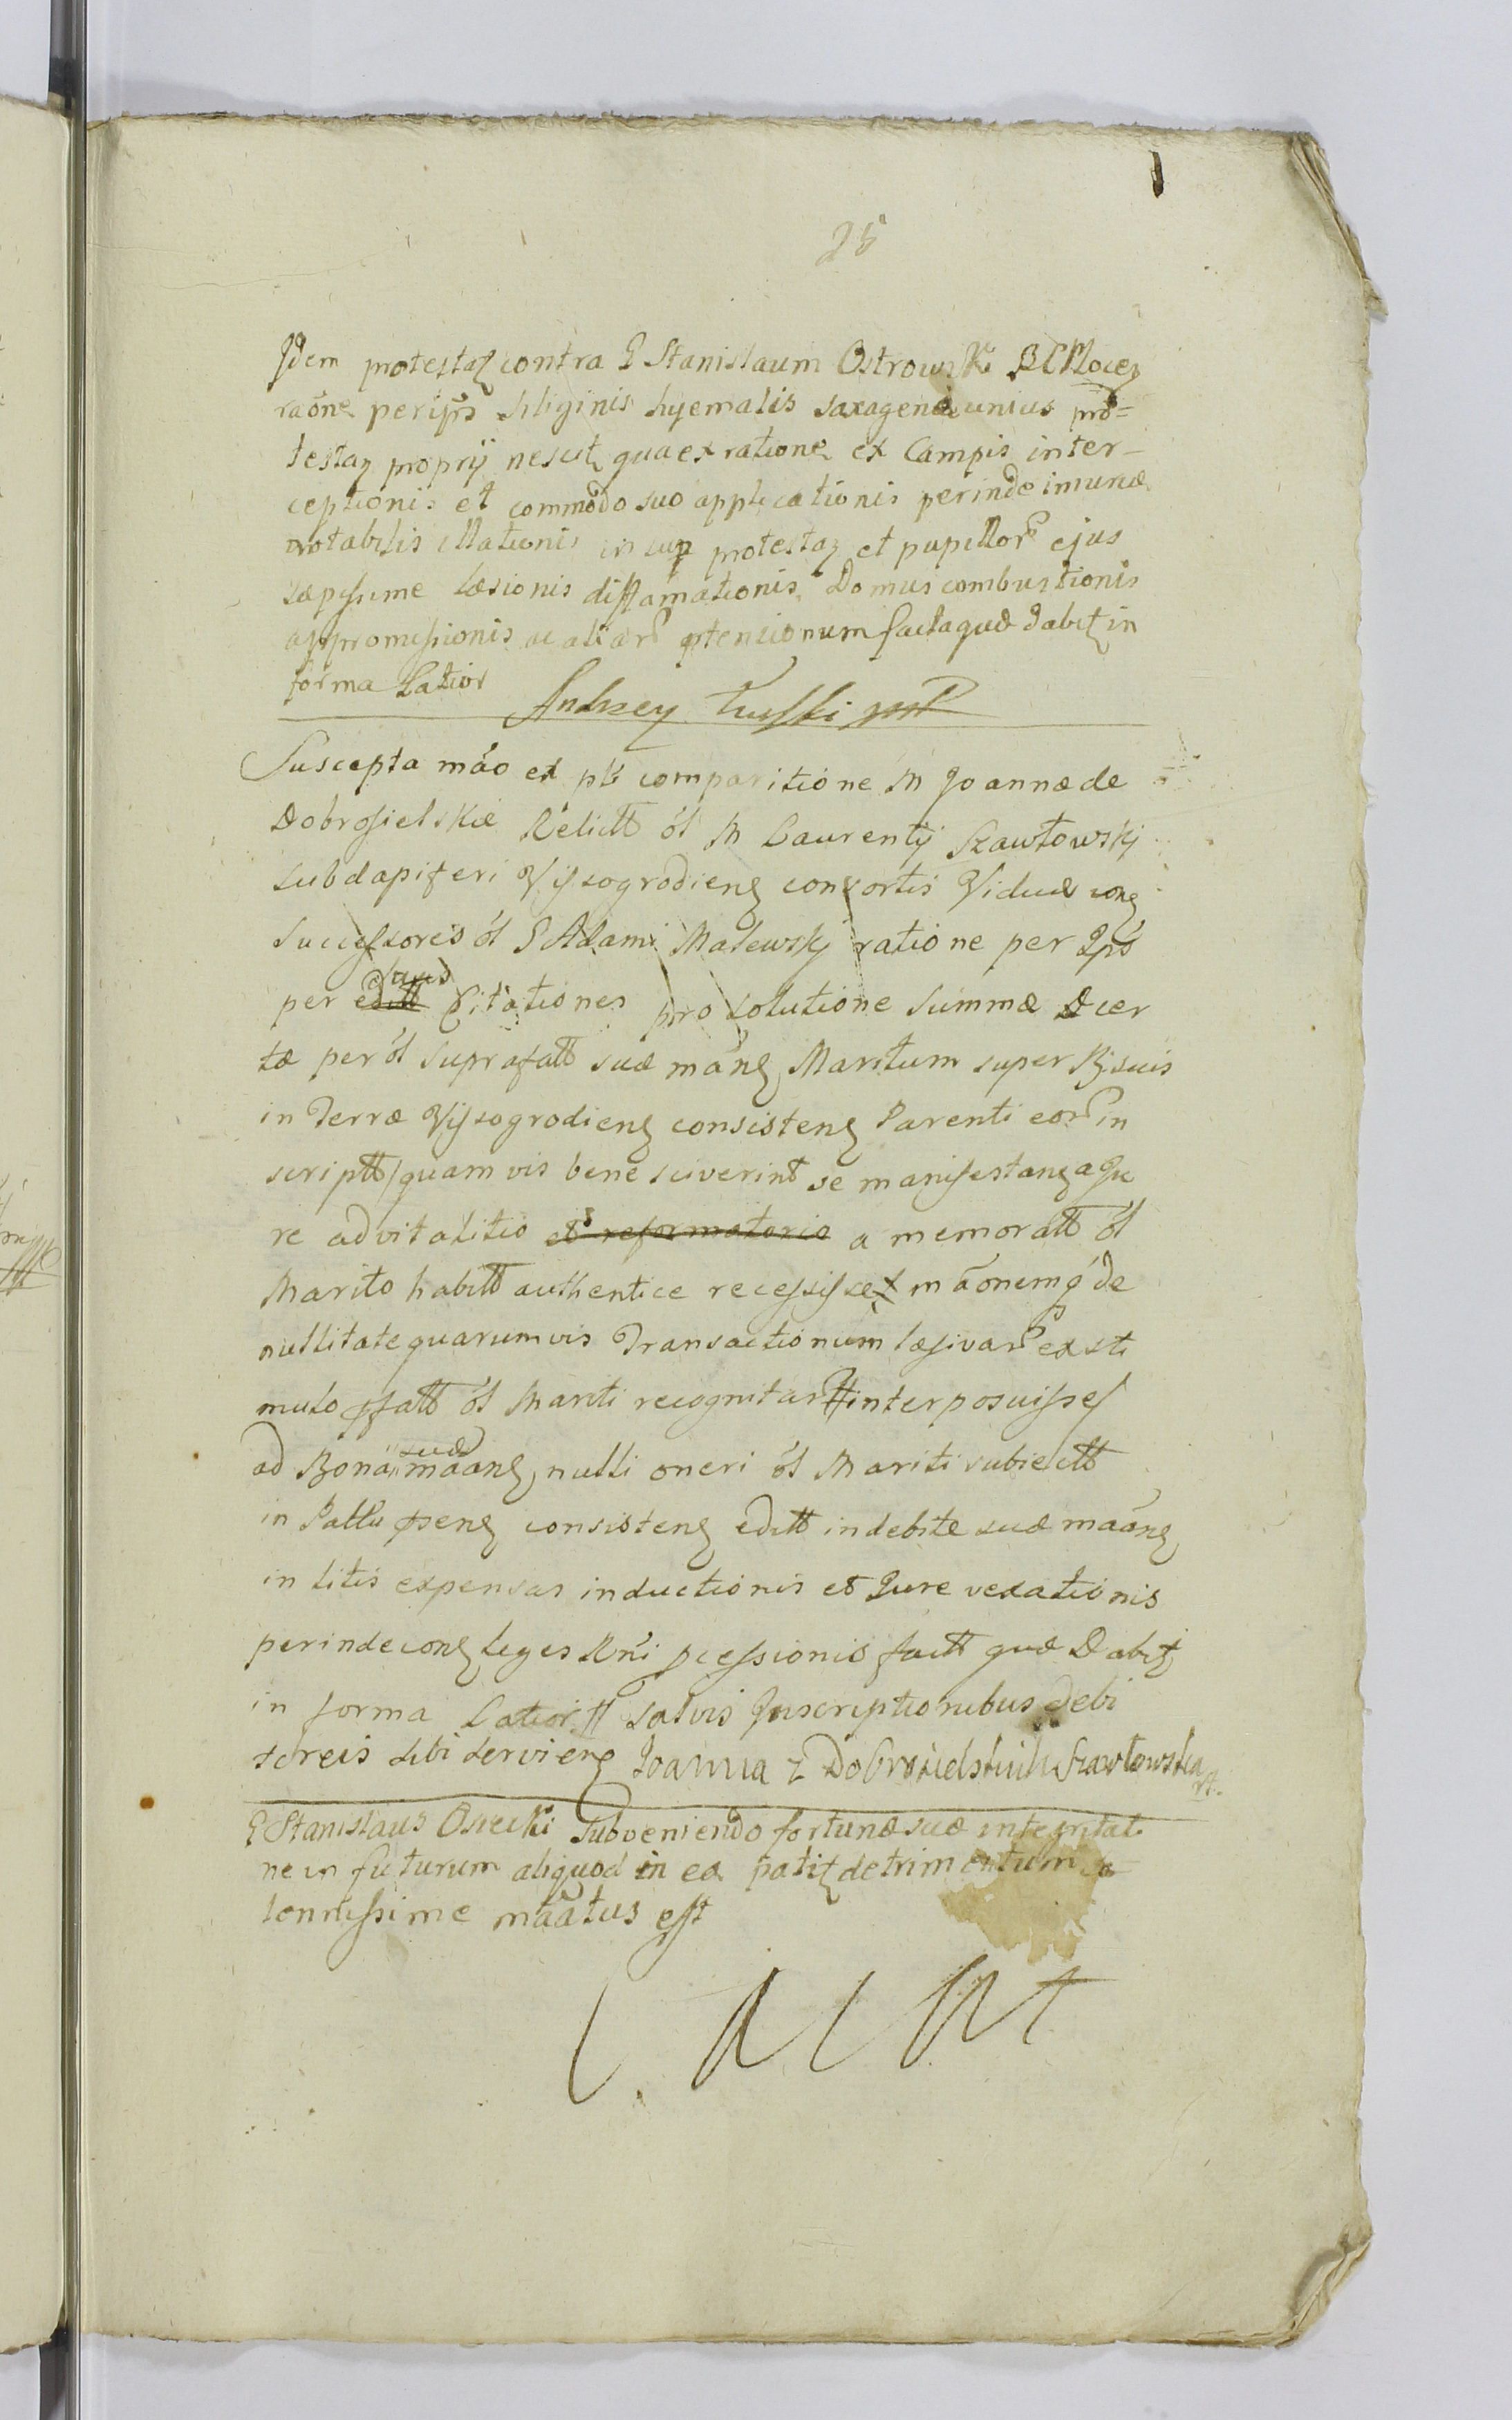 25
Idem protestaz contra G Stanislaum Ostrowski BCPlocez
raõne per ipss siliginis hyemalis saxagenæ unius pro=
testaz proprij nescitz qua ex ratione ex Campis inter-
ceptionis et commodo suo applicationis perinde in
notabilis illationis in protestaz et pupillor ejus
sæpissime læsionis diffamationis Domus combustionis
appromissionis ac aliar ptensionum facta quæ dabitz in
forma Latior Andrzey mp
Suscepta mão ex pti comparitione M Joannæ de
Dobrosielskie Relictæ ol M Laurentij Szawłowskj
subdapiferi Vyssogrodienz consortis Viduæ conz
Successores ol G Adami Malewskj ratione per Ipss
per editt suas Citationes pro solutione summæ cer
tæ per ol suprafatt suæ mãnz Maritum super Bz suis
in Terræ Vyssogrodienz consistenz Parenti eor in
scriptt quam vis bene sciverint se manifestanz a Ju
re advitalitio et reformatorio a memoratt ol
Marito habitt authentice recessisse mãonemq de
nullitate quarumvis Transactionum læsivar ex sti
mulo pfatt ol Mariti recognitar interposuisse
ad Bona suæ mãanz nulli oneri ol Mariti subiectt
in Pałłu psenz consistenz editt indebite suæ mãanz
in litis expensas inductionis et Jure vexationis
perinde conz leges Rni pcessionis factt quæ Dabitz
in forma Latior salvis Inscriptionibus debi
toreis sibi servienz Joanna z Dobrosielskich Szawłowska
G Stanislaus Osiecki Subveniendo fortunæ suæ integritati
ne in futurum aliquod in ea patitz detrimentum so
lennissime mãatus est